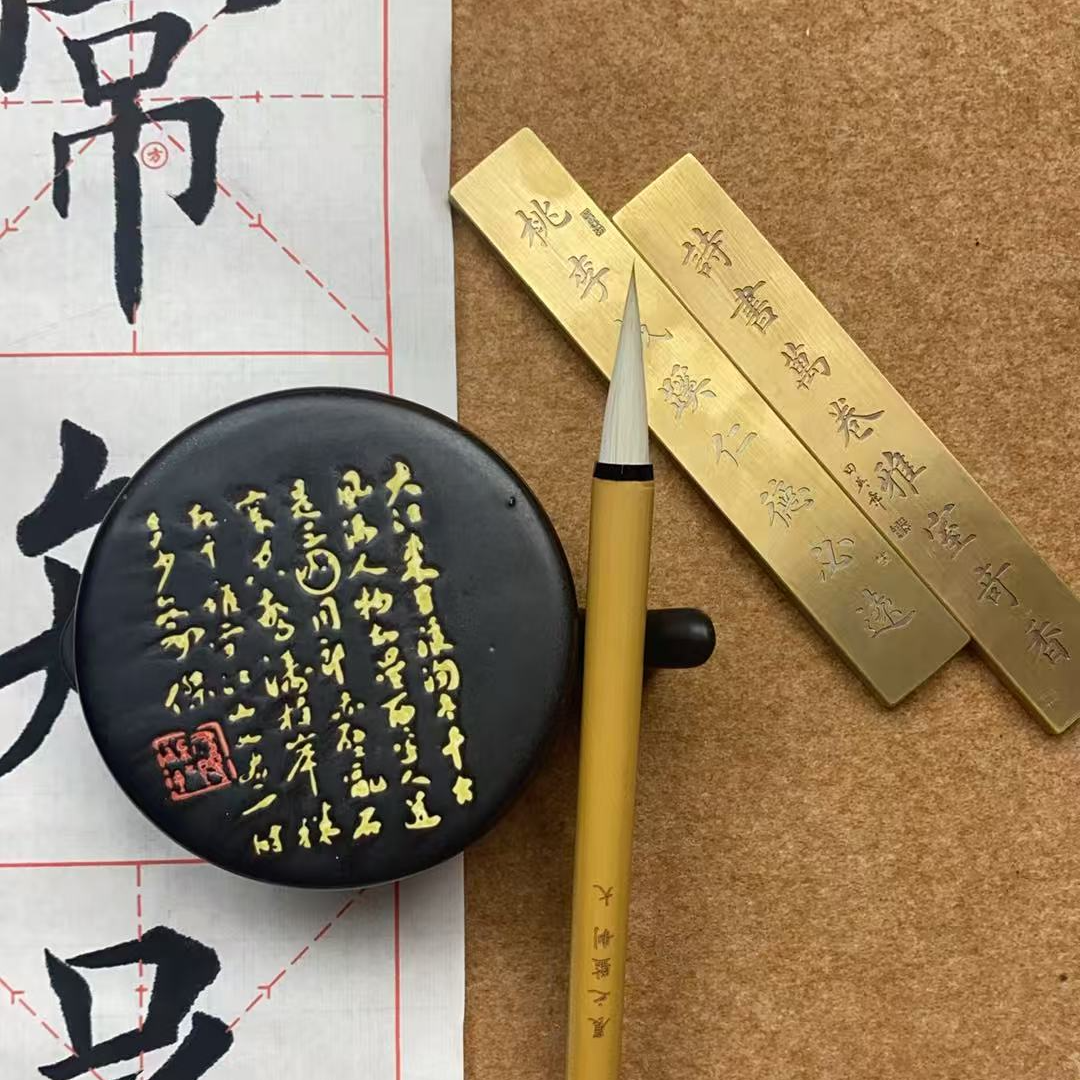 常
桃李
仁德必
詩書萬卷雅室奇香
大江東去浪淘盡千古
風流人物故壘西邊人道
是三國周郎赤壁亂石
穿空驚濤拍岸捲
起千堆雪江山如畫一時
多少豪傑
晨之監制 大